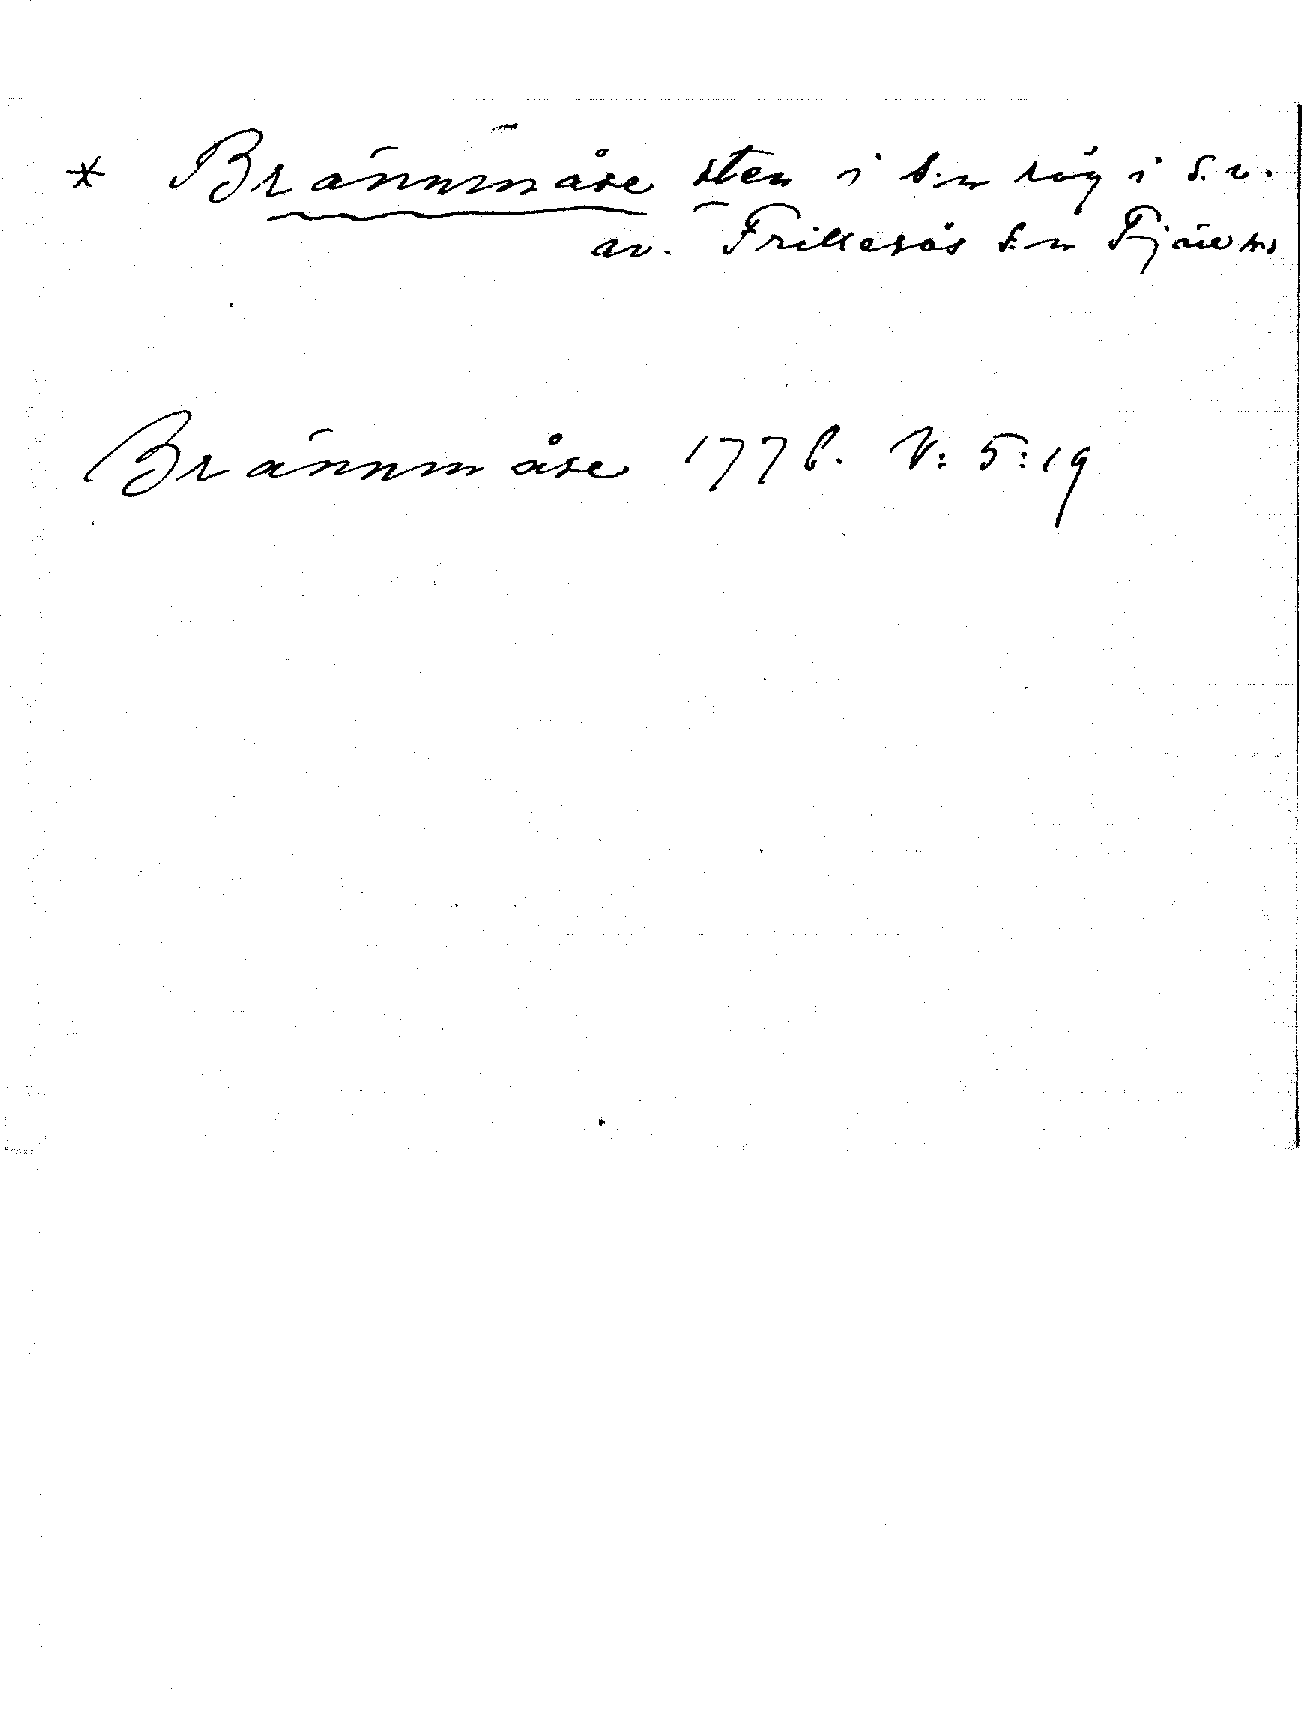 * Brännmåse sten i s:n råg i s.v.
av. Frillesås s:n Fjäre hd
Brännmåse 1776. V: 5:19